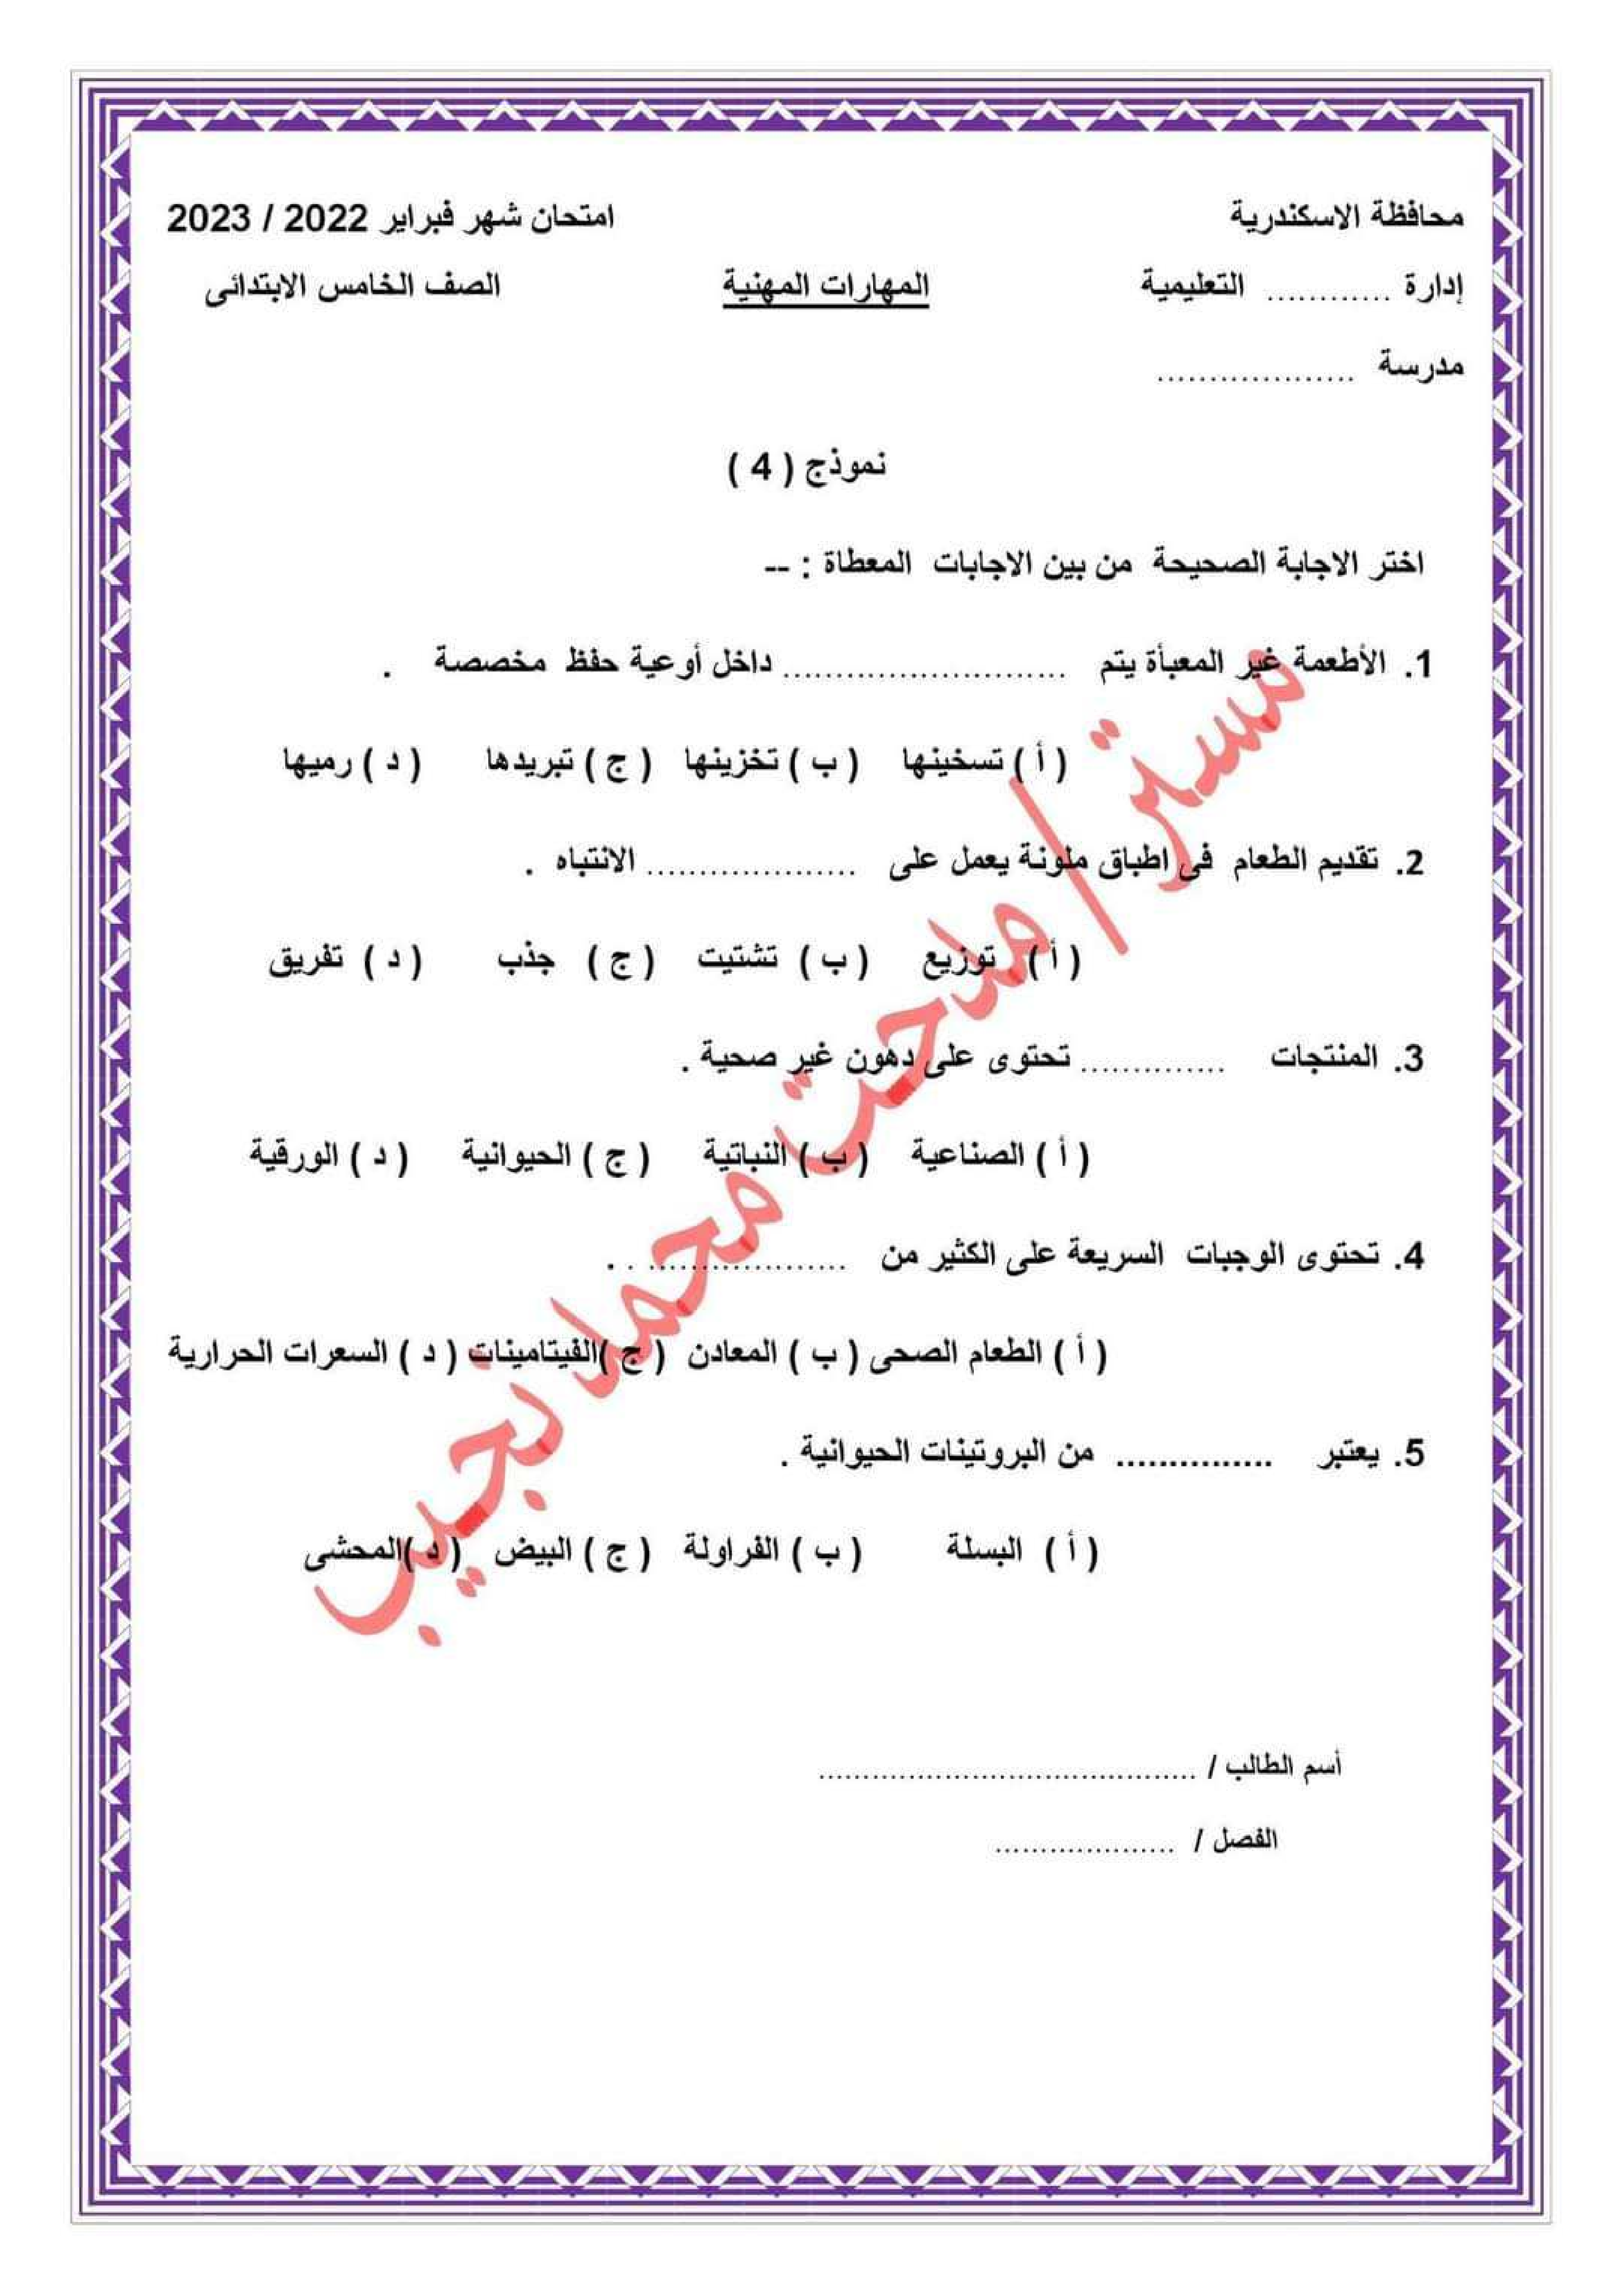 محافظة الاسكندرية امتحان شهر فبراير 2022 / 2023
إدارة ............ التعليمية المهارات المهنية الصف الخامس الابتدائى
مدرسة ...................
نموذج ( 4 )
اختر الاجابة الصحيحة من بين الاجابات المعطاة : --
1. الأطعمة غير المعبأة يتم ........................... داخل أوعية حفظ مخصصة .
( أ ) تسخينها ( ب ) تخزينها ( ج ) تبريدها ( د ) رميها
2. تقديم الطعام فى اطباق ملونة يعمل على .................... الانتباه .
( أ ) توزيع ( ب ) تشتيت ( ج ) جذب ( د ) تفريق
3. المنتجات .............. تحتوى على دهون غير صحية .
( أ ) الصناعية ( ب ) النباتية ( ج ) الحيوانية ( د ) الورقية
4. تحتوى الوجبات السريعة على الكثير من ................... . .
( أ ) الطعام الصحى ( ب ) المعادن ( ج )الفيتامينات ( د ) السعرات الحرارية
5. يعتبر ............... من البروتينات الحيوانية .
( أ ) البسلة ( ب ) الفراولة ( ج ) البيض ( د )المحشى
مستر / مدحت محمد نجيب
أسم الطالب / ..........................................
الفصل / ....................